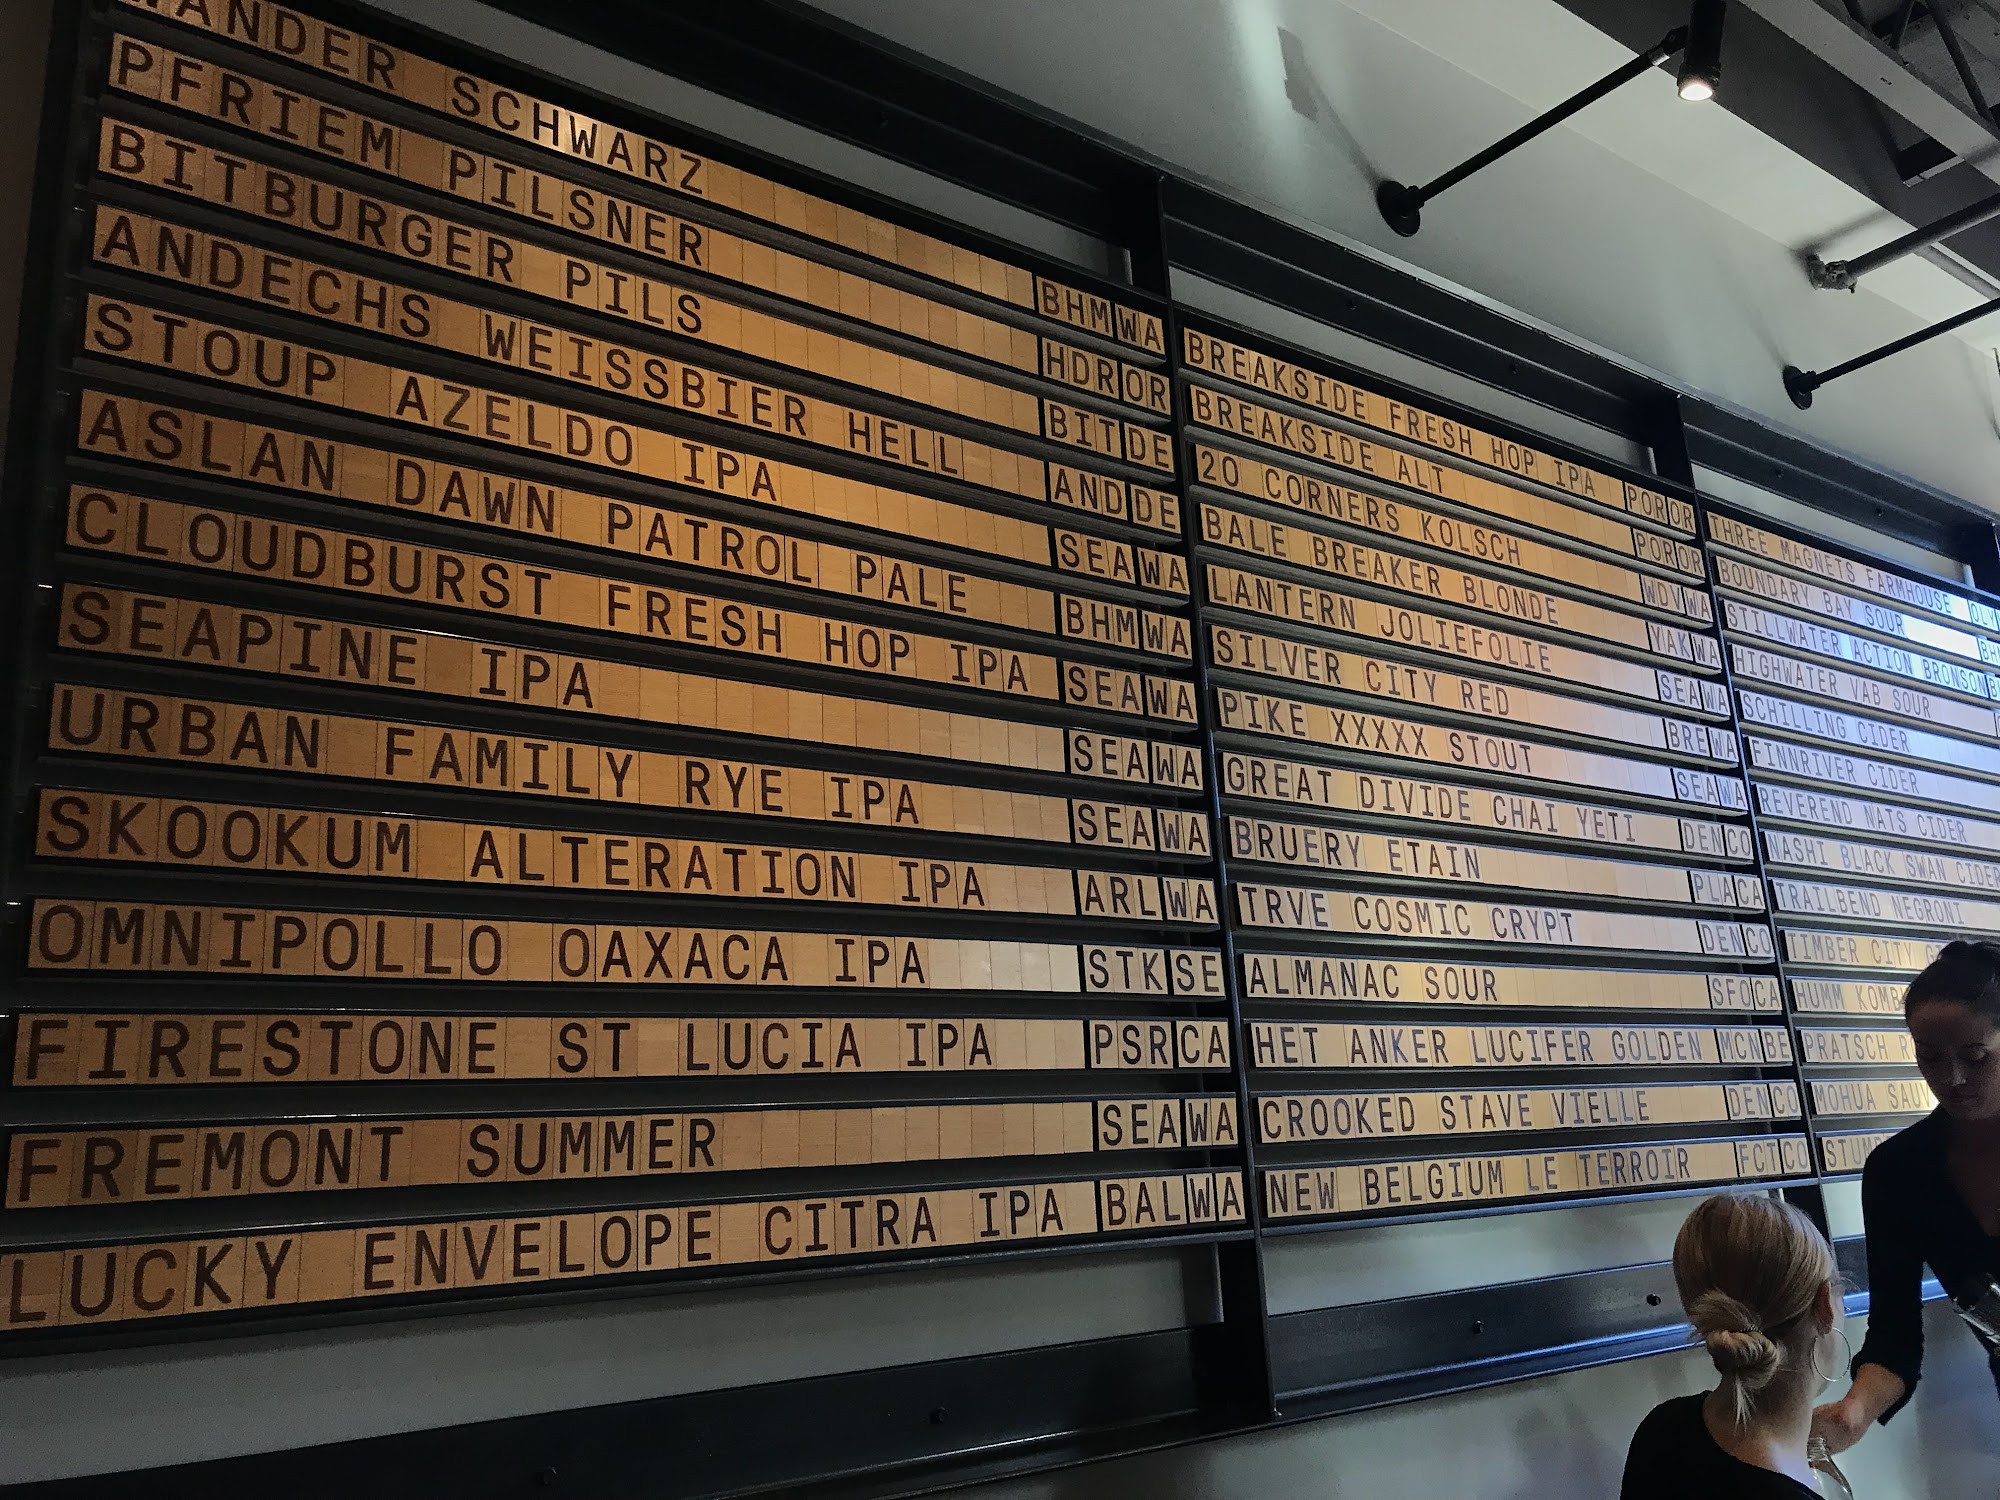 WANDER SCHWARZ BHM WA
PFRIEM PILSNER HDR OR
BITBURGER PILS BIT DE
ANDECHS WEISSBIER HELL AND DE
STOUP AZELDO IPA SEA WA
ASLAN DAWN PATROL PALE BHM WA
CLOUDBURST FRESH HOP IPA SEA WA
SEAPINE IPA SEA WA
URBAN FAMILY RYE IPA SEA WA
SKOOKUM ALTERATION IPA ARL WA
OMNIPOLLO OAXACA IPA STK SE
FIRESTONE ST LUCIA IPA PSR CA
FREMONT SUMMER SEA WA
LUCKY ENVELOPE CITRA IPA BAL WA
BREAKSIDE FRESH HOP IPA POR OR
BREAKSIDE ALT POR OR
20 CORNERS KOLSCH WDV WA
BALE BREAKER BLONDE YAK WA
LANTERN JOLIEFOLIE SEA WA
SILVER CITY RED BRE WA
PIKE XXXXX STOUT SEA WA
GREAT DIVIDE CHAI YETI DEN CO
BRUERY ETAIN PLA CA
TRVE COSMIC CRYPT DEN CO
ALMANAC SOUR SFO CA
HET ANKER LUCIFER GOLDEN MCN BE
CROOKED STAVE VIELLE DEN CO
NEW BELGIUM LE TERROIR FCT CO
THREE MAGNETS FARMHOUSE OLY
BOUNDARY BAY SOUR
STILLWATER ACTION BRONSON
HIGHWATER VAB SOUR
SCHILLING CIDER
FINNRIVER CIDER
REVEREND NATS CIDER
NASHI BLACK SWAN CIDER
TRAILBEND NEGRONI
TIMBER CITY
HUMM
PRATSCH
MOHUA